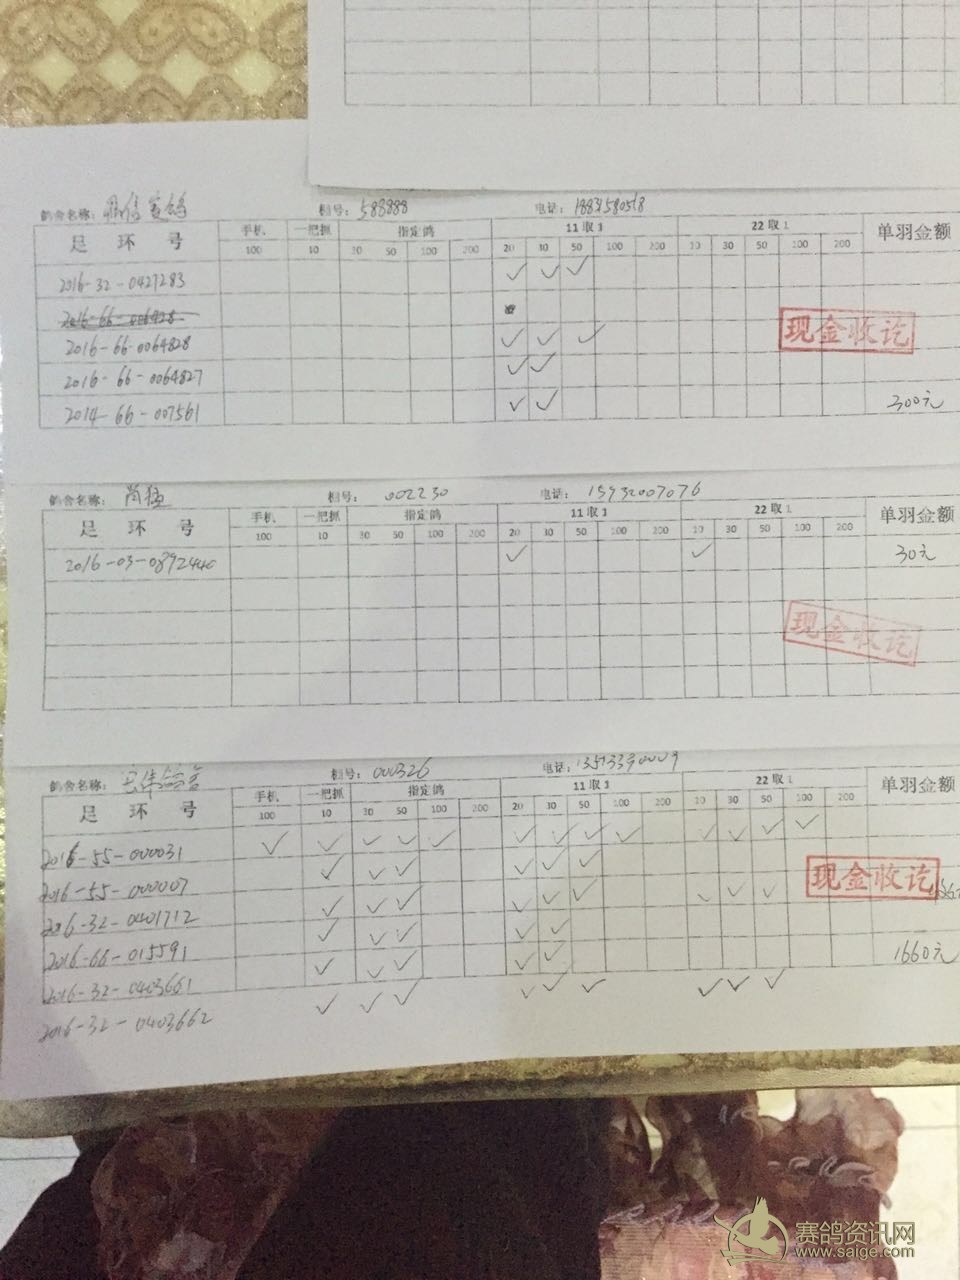 鸽舍名称: 赛鸽 棚号: 588888 电话: 18831580518
足 环 号 手机 一把抓 指定鸽 11取1 22取1 单羽金额
100 10 30 50 100 200 20 30 50 100 200 10 30 50 100 200
2016-32-0427283 ✓ ✓ ✓
2016-66-006428
2016-66-0064828 ✓ ✓ ✓
现金收讫
2016-66-0064827 ✓ ✓
2014-66-007561 ✓ ✓ 300元
鸽舍名称: 尚猛 棚号: 002230 电话: 15932007076
足 环 号 手机 一把抓 指定鸽 11取1 22取1 单羽金额
100 10 30 50 100 200 20 30 50 100 200 10 30 50 100 200
2016-03-0892440 ✓ ✓ 30元
现金收讫
鸽舍名称: 棚号: 000326 电话: 13513390009
足 环 号 手机 一把抓 指定鸽 11取1 22取1 单羽金额
100 10 30 50 100 200 20 30 50 100 200 10 30 50 100 200
2016-55-000031 ✓ ✓ ✓ ✓ ✓ ✓ ✓ ✓ ✓ ✓ ✓ ✓ ✓
2016-55-000007 ✓ ✓ ✓ ✓ ✓ ✓
现金收讫
2016-32-0401712 ✓ ✓ ✓ ✓ ✓ ✓ ✓ ✓ ✓
2016-66-015591 ✓ ✓ ✓ ✓ ✓ 1660元
2016-32-0403661 ✓ ✓ ✓ ✓ ✓
2016-32-0403662 ✓ ✓ ✓ ✓ ✓ ✓ ✓ ✓ ✓
赛鸽资讯网
www.saige.com